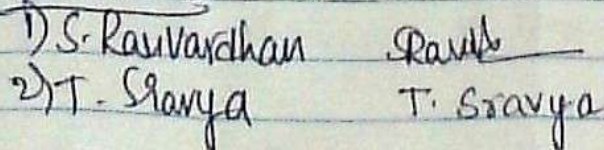 1) S. Ravivardhan
2) T. Sravya T. Sravya